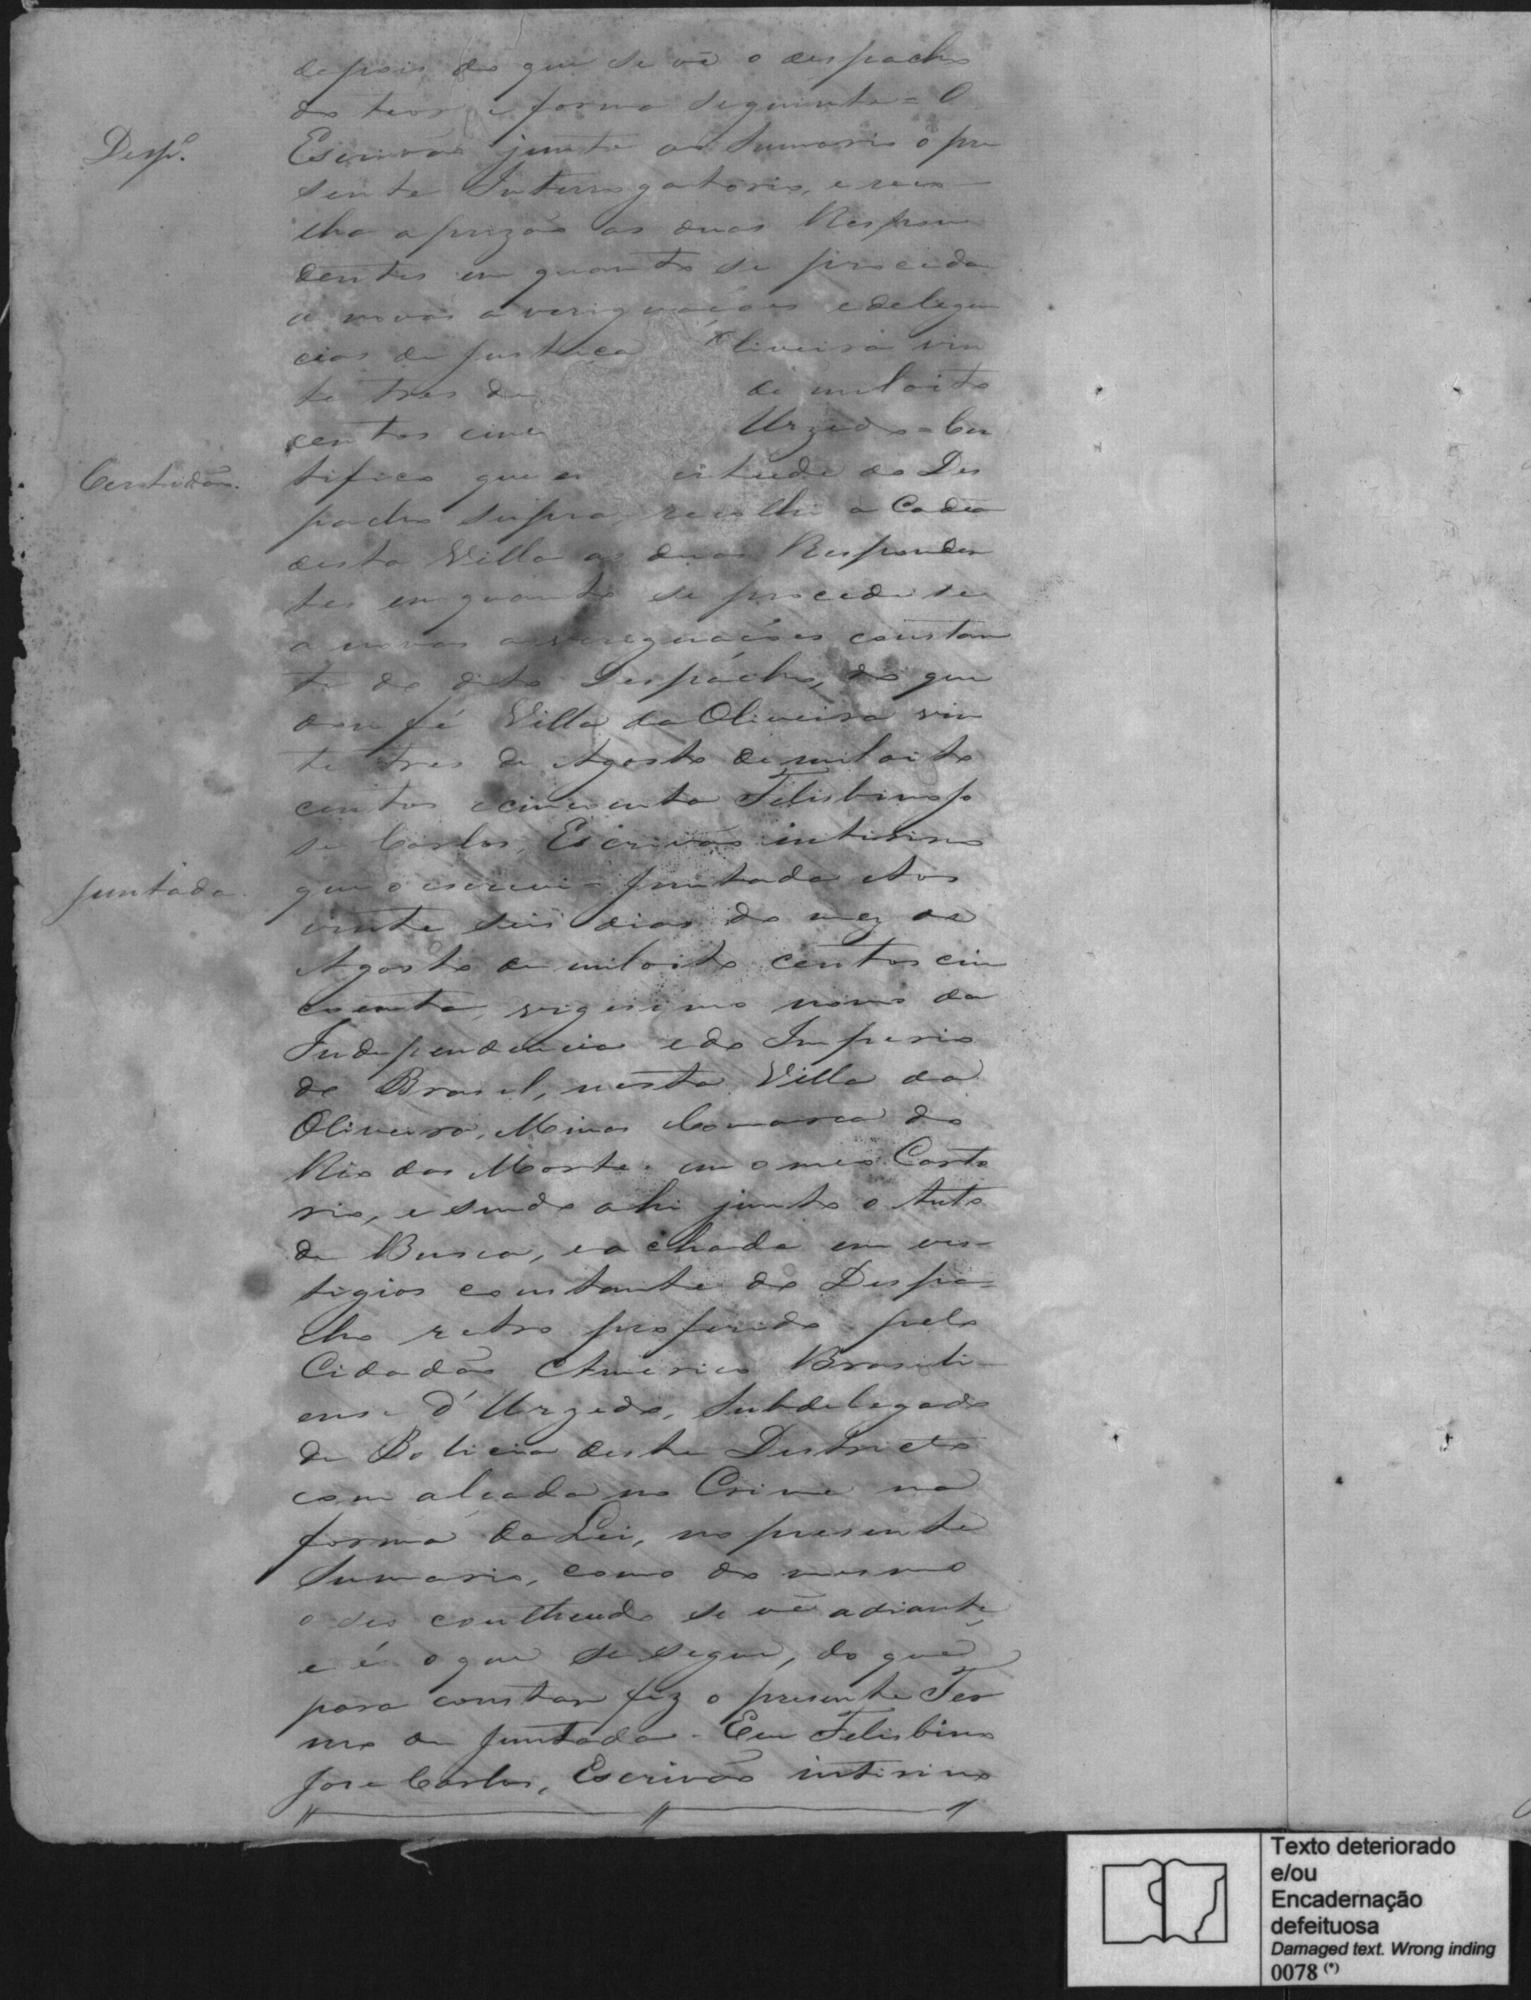 depois do que se vê o despacho
do teor e forma seguinte = O
Desp.º
Escrivão junte ao Sumario o pre
sente Interrogatorio, e reco-
lha a prizão as duas Respon
dentes em quanto se proceda
a novas averiguações e delegen
cias de Justiça Oliveira vin
te tres de de mil oito
centos cinc Urzedo = Cer
Certidão.
tifico que em virtude do Des
pacho supra recolhi a Cadea
desta Villa as duas Responden
tes em quanto se procede se
a novas averiguações constan
te do dito Despacho, do que
dou fé Villa da Oliveira vin
te tres de Agosto de mil oito
centos e cincoenta Felisbino Jo
se Carlos, Escrivão intirino
Juntada.
que o escrevi = Juntada Aos
vinte seis dias do mez de
Agosto de mil oito centos cin
coenta, vigesimo nono da
Independencia e do Imperio
do Brasil, nesta Villa da
Oliveira, Minas Comarca do
Rio das Morte. em o meo Carto
rio, e sendo ahi junto o Auto
de Busca, e achada em ves-
tigios constante do Despa-
cho retro proferido pelo
Cidadão Americo Brasili-
ense d'Urzedo, Subdelegado
de Policia deste Districto
com alçada no Crime na
forma da Lei, no presente
Sumario, como do mesmo
o seo contheudo se vê adiante,
e é o que se segue, do que
para constar fiz o presente Ter
mo de Juntada. Eu Felisbino
Jose Carlos, Escrivão intirino
Texto deteriorado
e/ou
Encadernação
defeituosa
Damaged text. Wrong inding
0078 (*)